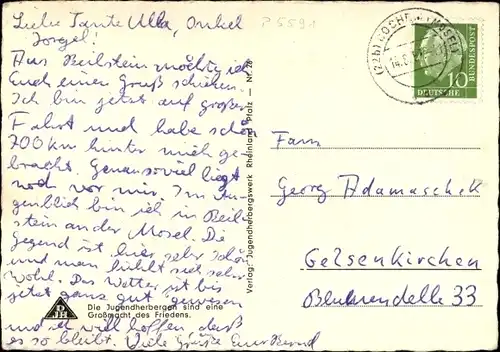 Liebe Tante Ulla, Onkel
Jorgel!
Aus Beilstein möchte ich
Euch einen Gruß schicken.
Ich bin jetzt auf großer
Fahrt und habe schon
700 km hinter mich ge-
bracht. Genausoviel liegt
noch vor mir. Im Au-
genblick bin ich in Beil-
stein an der Mosel. Die
Gegend ist hier sehr schön
und man fühlt sich sehr
wohl. Das Wetter ist bis
jetzt ganz gut gewesen
und ich will hoffen daß
es so bleibt. Viele Grüße Euer Bernd
Die Jugendherbergen sind eine
Großmacht des Friedens.
Verlag: Jugendherbergswerk Rheinland-Pfalz — Nr. 26
P 5591
(22b) COCHEM (MOSEL)
10
DEUTSCHE
BUNDESPOST
Fam
Georg Adamaschek
Gelsenkirchen
Blumendelle 33